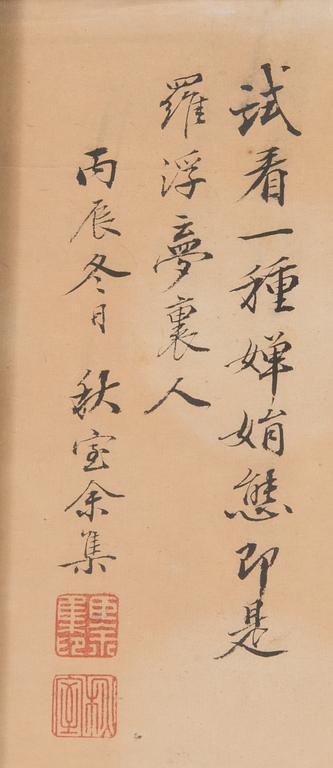 試看一種嬋娟態即是
羅浮夢裏人
丙辰冬日 秋室余集